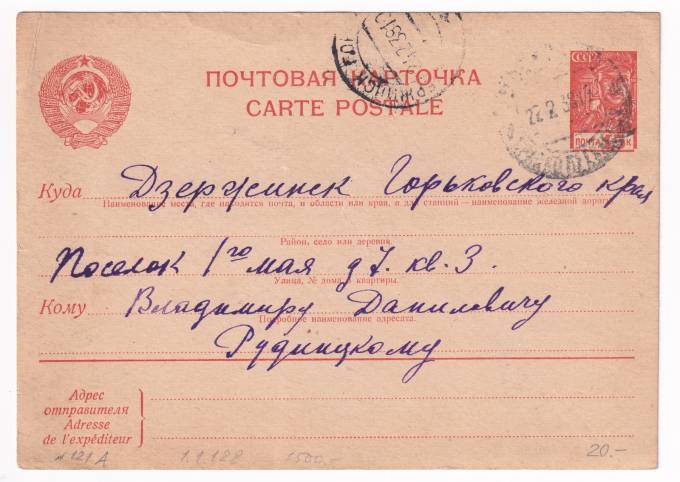 ПОЧТОВАЯ КАРТОЧКА
CARTE POSTALE
СССР
22 2 38
Куда Дзержинск Горьковского края
Наименование места, где находится почта, и области или края, а для станций — наименование железной дороги
Район, село или деревня
Поселок 1го мая д 7. кв. 3.
Улица, № дома и квартиры.
Кому Владимиру Даниловичу
Подробное наименование адресата.
Рудницкому
Адрес
отправителя
Adresse
de l'expéditeur
№ 121 А 1.1.128 1500.- 20.-